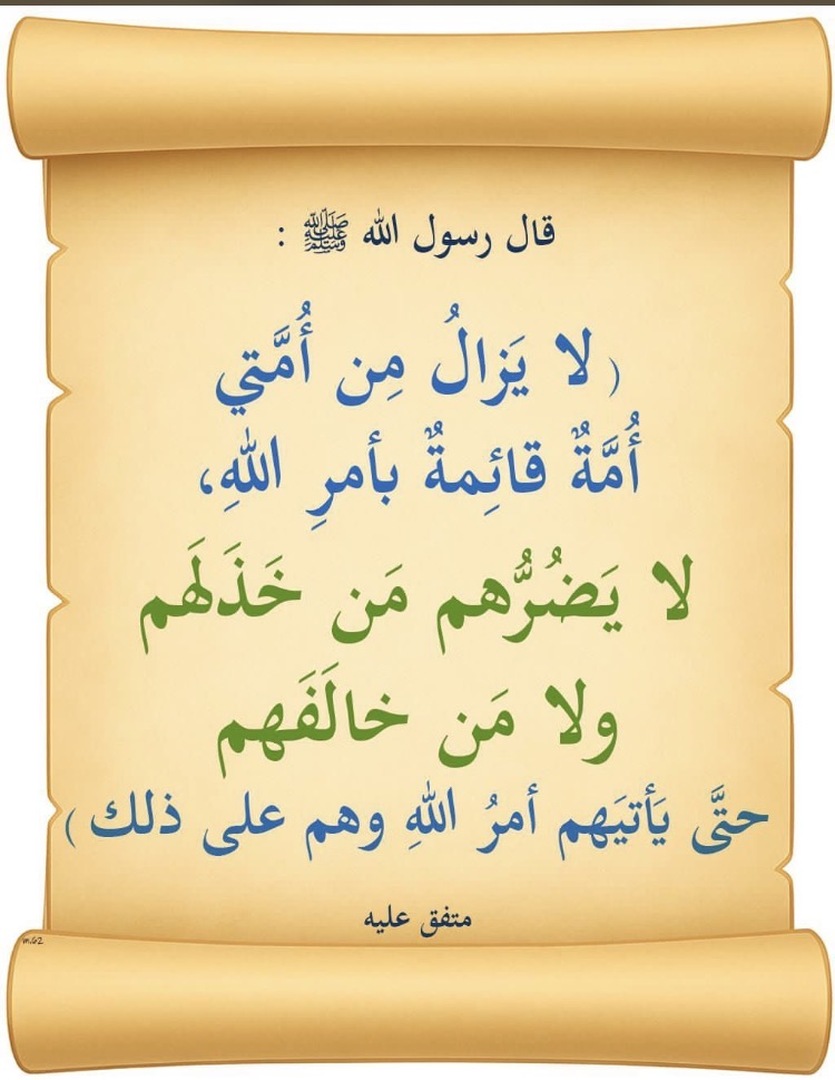 قال رسول الله ﷺ :
( لا يَزالُ مِن أُمَّتي
أُمَّةٌ قائِمةٌ بأمرِ اللهِ،
لا يَضُرُّهم مَن خَذَلَهم
ولا مَن خالَفَهم
حتَّى يَأتيَهم أمرُ اللهِ وهم على ذلك )
متفق عليه